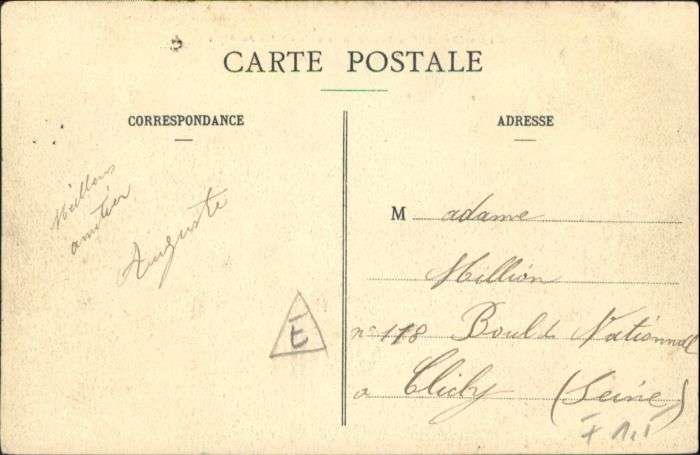 CARTE POSTALE
CORRESPONDANCE
Meilleurs
amitiés
Auguste
E
ADRESSE
M adame
Million
n° 118 Bould National
a Clichy (Seine)